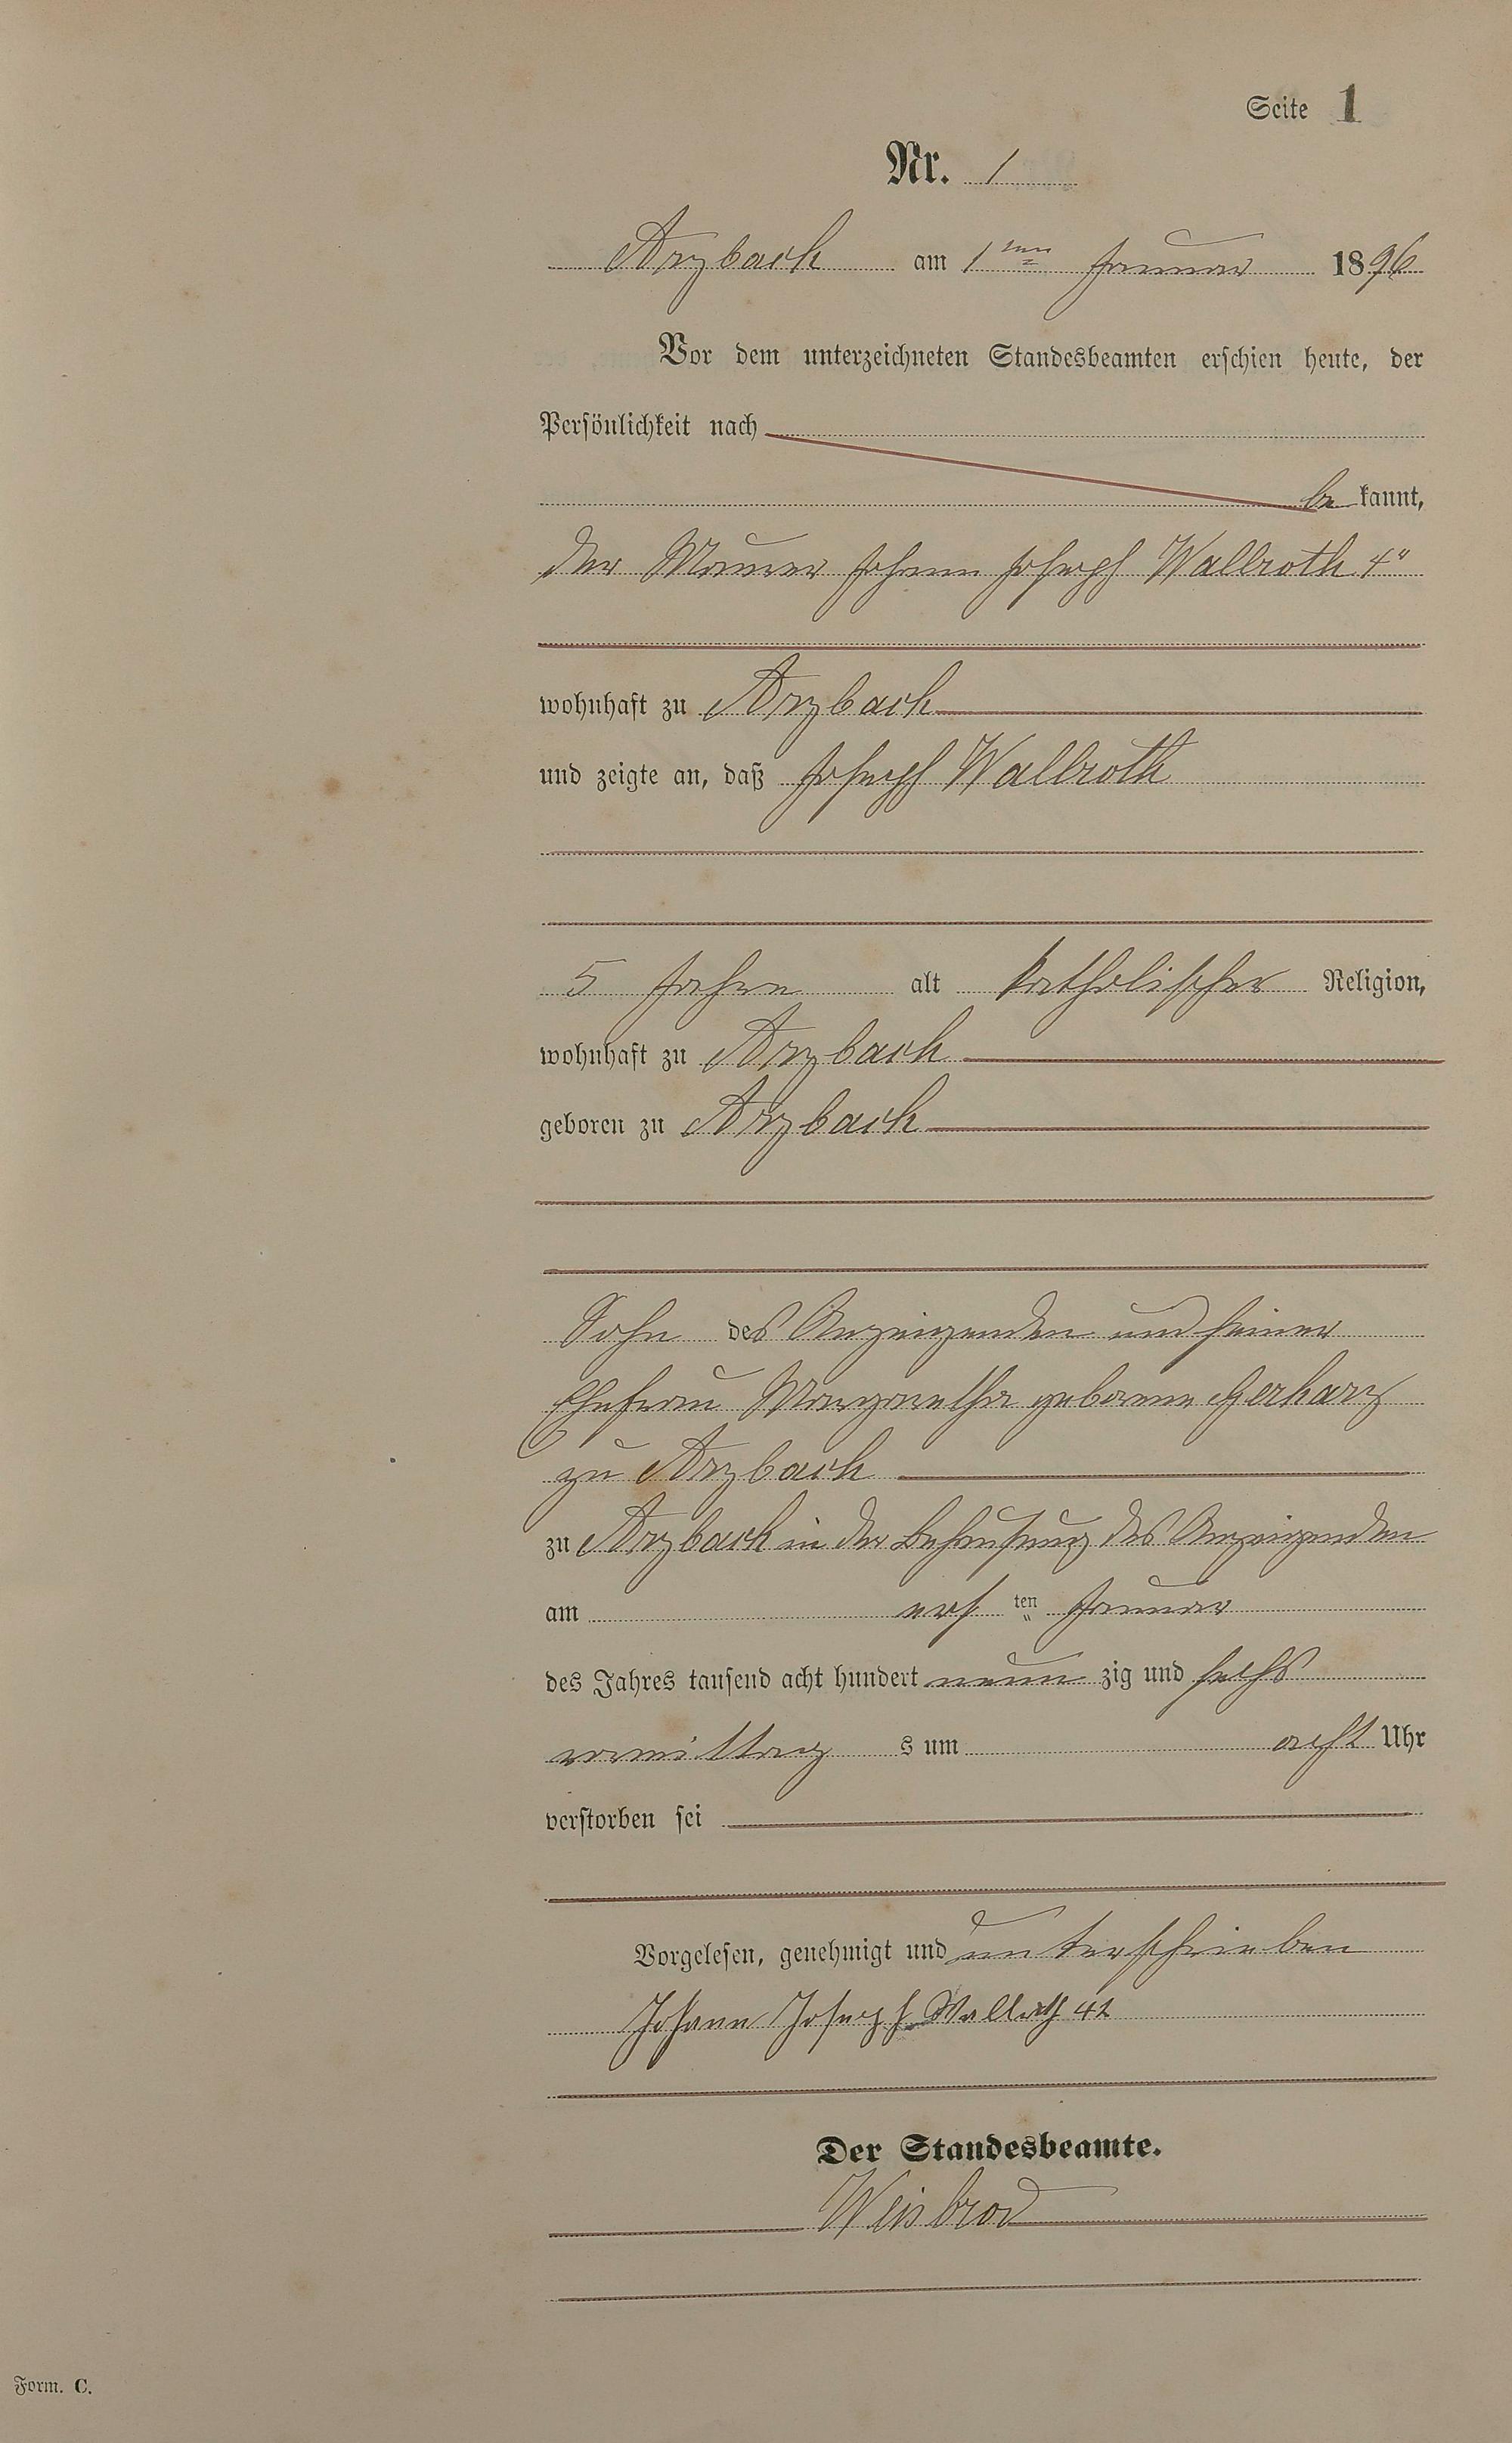 Seite 1
Nr. 1
Arzbach am 1ten Januar 1896
Vor dem unterzeichneten Standesbeamten erschien heute, der
Persönlichkeit nach
be kannt,
der Maurer Johann Joseph Wallroth 4"
wohnhaft zu Arzbach
und zeigte an, daß Joseph Wallroth
5 Jahre alt katholischer Religion,
wohnhaft zu Arzbach
geboren zu Arzbach
Sohn des Anzeigenden und seiner
Ehefrau Margaretha geborene Gerharz
zu Arzbach
zu Arzbach in der Behausung des Anzeigenden
am ersten Januar
des Jahres tausend acht hundert neun zig und sechs
vormittag s um acht Uhr
verstorben sei
Vorgelesen, genehmigt und unterschrieben
Johann Joseph Wallroth 4t
Der Standesbeamte.
Weisbrod
Form. C.